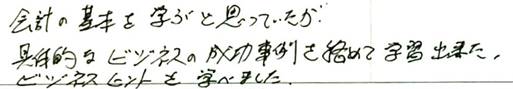 会計の基本を学ぶと思っていたが.
具体的なビジネスの成功事例を絡めて学習出来た.
ビジネスヒントを学べました.